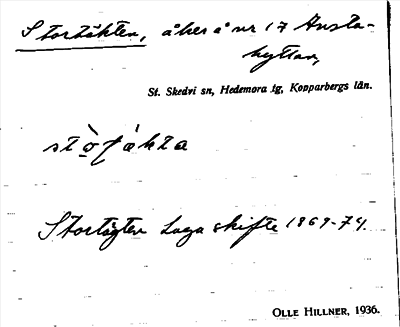 Stortäkten, åker å nr 17 Ansta-
hyttan,
St. Skedvi sn, Hedemora tg, Kopparbergs län.
Stortägten Laga skifte 1869-74.
OLLE HILLNER, 1936.